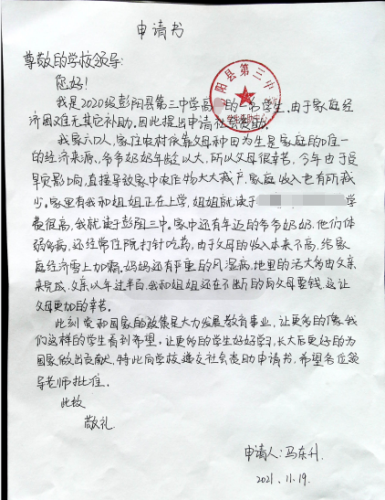 申请书
尊敬的学校领导:
您好!
我是2020级彭阳县第三中学高 的一名学生,由于家庭经
济困难无其它补助,因此提出申请社会资助。
我家六口人,家住农村依靠父母种田为生是家庭的唯一
的经济来源,爷爷奶奶年龄以大,所以父母很辛苦,今年由于受
旱灾影响,直接导致家中农作物大大减产,家庭收入也有所减
少。家里有我和姐姐正在上学,姐姐就读于 学
费很高,我就读于彭阳三中。家中还有年迈的爷爷奶奶,他们体
弱多病,还经常住院打针吃药,由于父母的收入本来不高,给家
庭经济雪上加霜。妈妈还有严重的风湿病,地里的活大多由父亲
来完成,父亲以年过半百,我和姐姐还在不断的向父母要钱,这让
父母更加的辛苦。
此刻党和国家的政策是大力发展教育事业,让更多的像我
们这样的学生看到希望,让更多的学生好好学习,长大后更好的为
国家做出贡献,特此向学校递交社会资助申请书,希望各位领
导老师批准。
此致
敬礼
申请人:马东升
2021.11.19.
阳县第三中